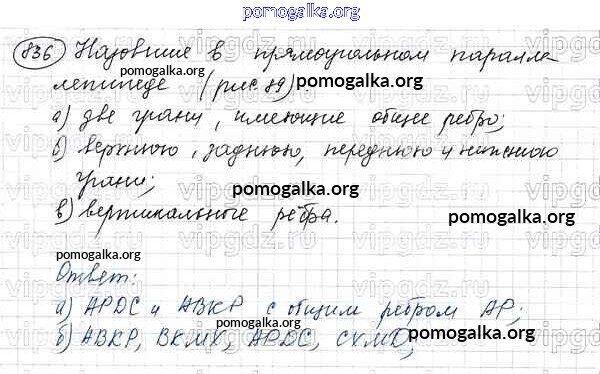 pomogalka.org
836 Назовите в прямоугольном паралле-
лепипеде (рис. 89)
pomogalka.org pomogalka.org
а) две грани, имеющие общее ребро;
б) верхнюю, заднюю, переднюю и нижнюю
грани;
pomogalka.org
в) вертикальные рёбра.
pomogalka.org
Ответ:
pomogalka.org
а) APDC и ABKP с общим ребром AP;
pomogalka.org
б) ABKP, BKMV, APDC, CVMD,
pomogalka.org